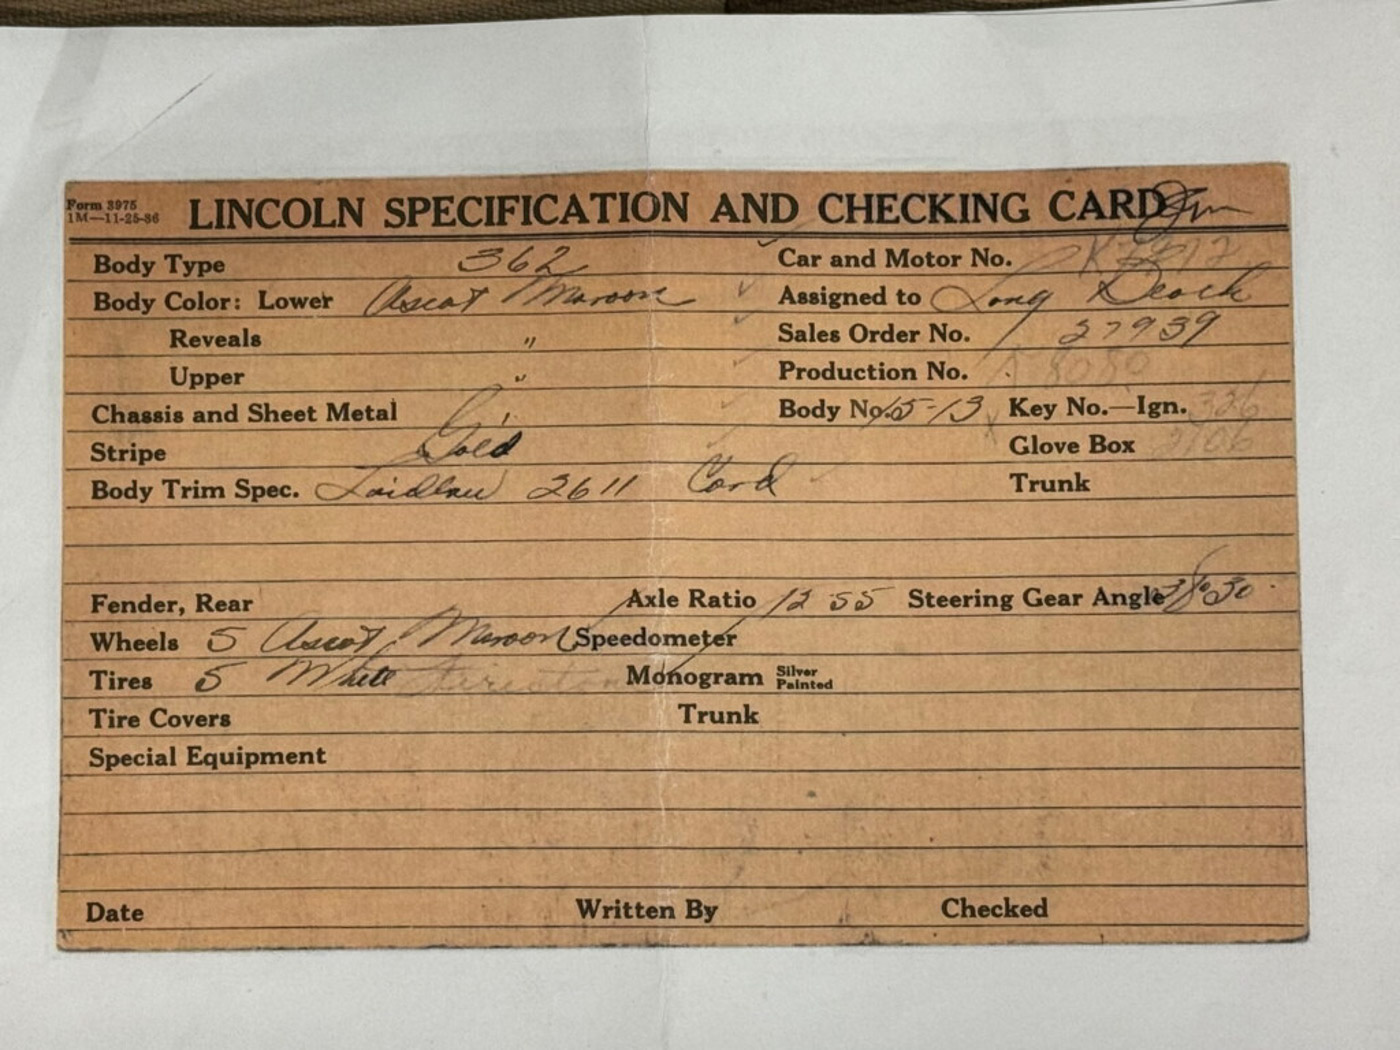 Form 3975
1M—11-25-36
LINCOLN SPECIFICATION AND CHECKING CARD
Body Type 362 Car and Motor No.
Body Color: Lower Ascot Maroon Assigned to Long Beach
Reveals " Sales Order No. 27939
Upper " Production No. 8080
Chassis and Sheet Metal " Body No. 15-13 Key No.—Ign. 326
Stripe Gold Glove Box 2106
Body Trim Spec. Laidlaw 2611 Cord Trunk
Fender, Rear Axle Ratio 12 55 Steering Gear Angle
Wheels 5 Ascot Maroon Speedometer
Tires 5 White Firestone Monogram Silver Painted
Tire Covers Trunk
Special Equipment
Date Written By Checked